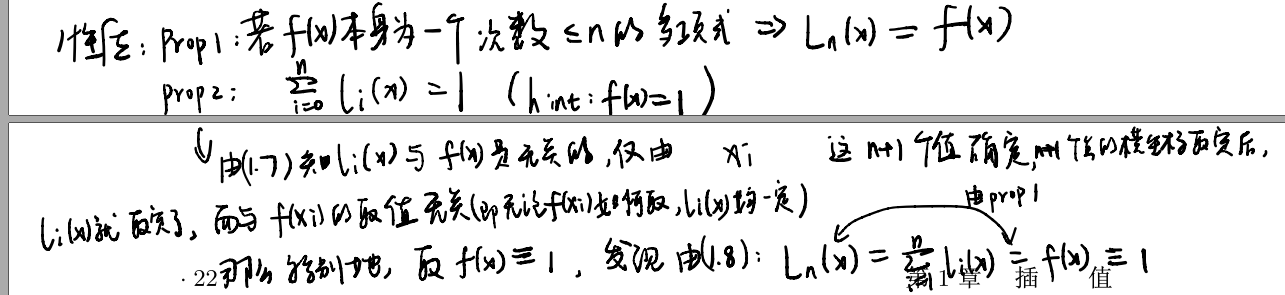 性质: prop1: 若 f(x)本身为一个次数 ≤n 的多项式 ⇒ Lₙ(x) = f(x)
prop2: ∑_{i=0}^{n} lᵢ(x) = 1 (hint: f(x)=1)
由(1.7)知 lᵢ(x) 与 f(x) 是无关的, 仅由 xᵢ 这 n+1 个值确定, n+1 个点的横坐标取定后,
lᵢ(x)就取定了, 而与 f(xᵢ) 的取值无关(即无论f(xᵢ)如何取, lᵢ(x)均一定)
由prop1
那么 特别地, 取 f(x) ≡ 1, 发现 由(1.8): Lₙ(x) = ∑ lᵢ(x) = f(x) ≡ 1
· 22 第 1 章 插 值